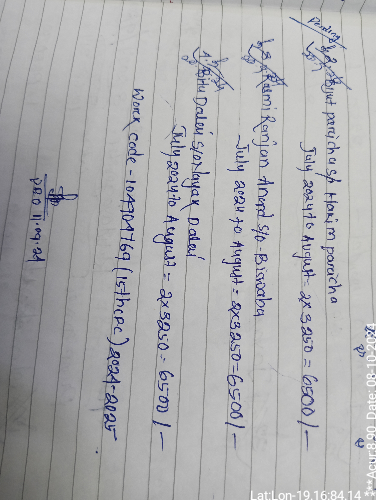 Pending
Bijut paricha S/o Hakim paricha
July 2024 to August = 2x3250 = 6500/-
Rasmi Ranjan Anand S/o- Biswaba
July 2024 to August = 2x3250 = 6500/-
Bitu Dalei S/o Nayak Dalei
July 2024 to August = 2x3250 = 6500/-
Work code - 104704769 (15thCFC) 2024-2025
PEO 11.09.24
Lat:Lon-19.16:84.14
***Acur:8.90 Date: 08-10-202